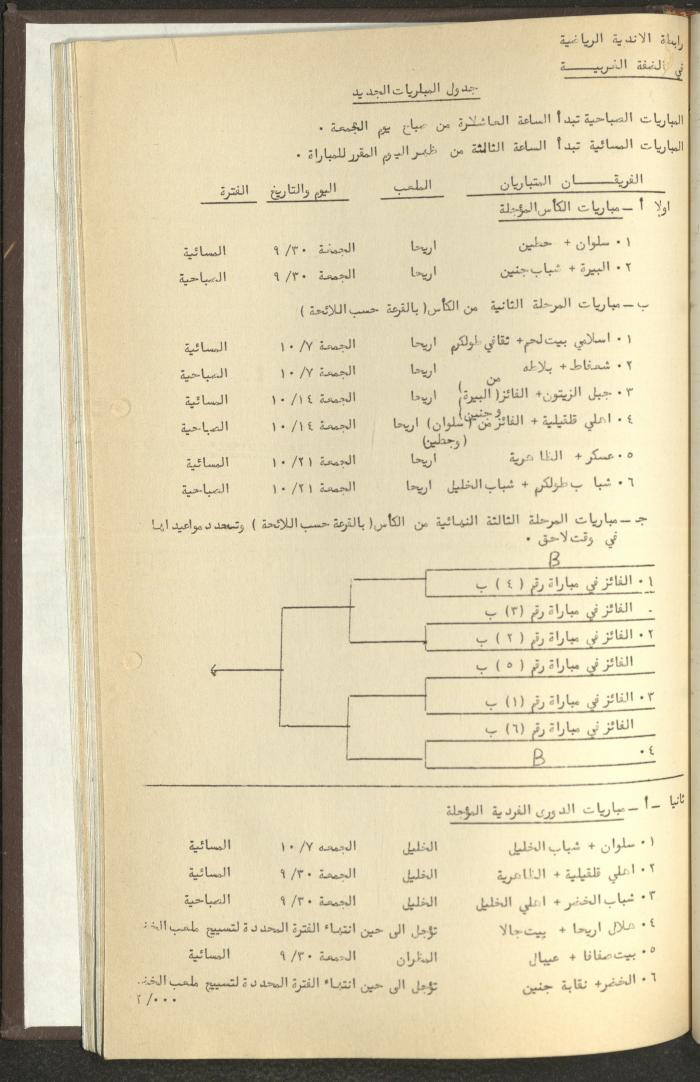 رابطة الاندية الرياضية
في الضفة الغربيــــة
جدول المباريات الجديد
المباريات الصباحية تبدأ الساعة العاشرة من صباح يوم الجمعة .
المباريات المسائية تبدأ الساعة الثالثة من ظهر اليوم المقرر للمباراة .
الفريقـــــان المتباريان الملعب اليوم والتاريخ الفترة
اولا أ – مباريات الكأس المؤجلة
١٠ سلوان + حطين اريحا الجمعة ٩/٣٠ المسائية
٢٠ البيرة + شباب جنين اريحا الجمعة ٩/٣٠ الصباحية
ب – مباريات المرحلة الثانية من الكأس ( بالقرعة حسب اللائحة )
١٠ اسلامي بيت لحم + ثقافي طولكرم اريحا الجمعة ١٠/٧ المسائية
٢٠ شعفاط + بلاطه اريحا الجمعة ١٠/٧ الصباحية
٣٠ جبل الزيتون + الفائز من ( البيرة وجنين ) اريحا الجمعة ١٠/١٤ المسائية
٤٠ اهلي قلقيلية + الفائز من ( سلوان ) اريحا الجمعة ١٠/١٤ الصباحية
( وحطين )
٥٠ عسكر + الظاهرية اريحا الجمعة ١٠/٢١ المسائية
٦٠ شباب طولكرم + شباب الخليل اريحا الجمعة ١٠/٢١ الصباحية
جـ – مباريات المرحلة الثالثة النهائية من الكأس ( بالقرعة حسب اللائحة ) وتسحدد مواعيدها
في وقت لاحق .
B
١٠ الفائز في مباراة رقم ( ٤ ) ب
. الفائز في مباراة رقم (٣) ب
٢٠ الفائز في مباراة رقم ( ٢ ) ب
الفائز في مباراة رقم ( ٥ ) ب
٣٠ الفائز في مباراة رقم (١) ب
الفائز في مباراة رقم (٦) ب
٤٠ B
ثانيا – أ – مباريات الدوري الفردية المؤجلة
١٠ سلوان + شباب الخليل الخليل الجمعه ١٠/٧ المسائية
٢٠ اهلي قلقيلية + الظاهرية الخليل الجمعة ٩/٣٠ المسائية
٣٠ شباب الخضر + اهلي الخليل الخليل الجمعة ٩/٣٠ الصباحية
٤٠ هلال اريحا + بيت جالا تؤجل الى حين انتهاء الفترة المحددة لتسييج ملعب
٥٠ بيت صفافا + عيبال المطران الجمعة ٩/٣٠ المسائية
٦٠ الخضر + نقابة جنين تؤجل الى حين انتهاء الفترة المحددة لتسييج ملعب
٢/٠٠٠